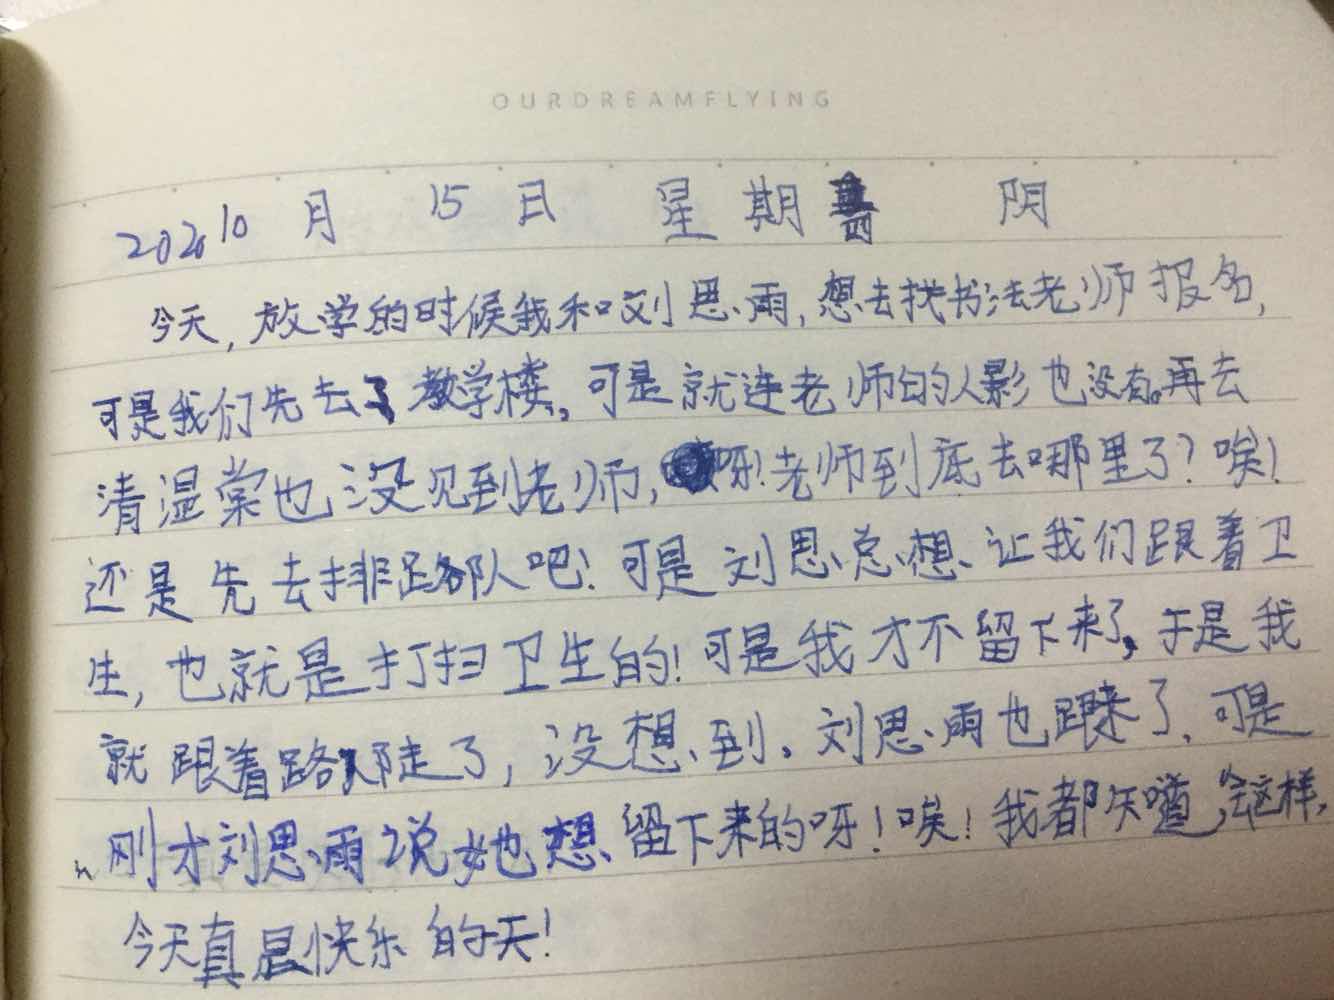 OURDREAMFLYING
2020 10 月 15 日 星期四 阴
今天,放学的时候我和刘思雨,想去找书法老师报名,
可是我们先去了教学楼,可是就连老师的人影也没有。再去
清湿棠也没见到老师,呀!老师到底去哪里了?唉!
还是先去排路队吧!可是刘思总想让我们跟着卫
生,也就是打扫卫生的!可是我才不留下来了,于是我
就跟着路队走了,没想到。刘思雨也跟来了,可是
刚才刘思雨说她想留下来的呀!唉!我都知道会这样,
今天真是快乐的天!